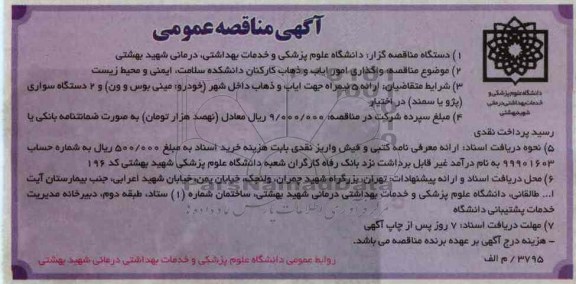 آگهی مناقصه عمومی
دانشگاه علوم پزشکی و
خدمات بهداشتی درمانی
شهید بهشتی
۱) دستگاه مناقصه گزار: دانشگاه علوم پزشکی و خدمات بهداشتی، درمانی شهید بهشتی
۲) موضوع مناقصه: واگذاری امور ایاب و ذهاب کارکنان دانشکده سلامت، ایمنی و محیط زیست
۳) شرایط متقاضیان: ارائه ۵ نیمراه جهت ایاب و ذهاب داخل شهر (خودرو: مینی بوس و ون) و ۲ دستگاه سواری
(پژو یا سمند) در اختیار
۴) مبلغ سپرده شرکت در مناقصه: ۹/۰۰۰/۰۰۰ ریال معادل (نهصد هزار تومان) به صورت ضمانتنامه بانکی یا
رسید پرداخت نقدی
۵) نحوه دریافت اسناد: ارائه معرفی نامه کتبی و فیش واریز نقدی بابت هزینه خرید اسناد به مبلغ ۵۰۰/۰۰۰ ریال به شماره حساب
۹۹۹۰۱۶۰۳ به نام درآمد غیر قابل برداشت نزد بانک رفاه کارگران شعبه دانشگاه علوم پزشکی شهید بهشتی کد ۱۹۶
۶) محل دریافت اسناد و ارائه پیشنهادات: تهران، بزرگراه شهید چمران، ولنجک، خیابان یمن، خیابان شهید اعرابی، جنب بیمارستان آیت
ا... طالقانی، دانشگاه علوم پزشکی و خدمات بهداشتی درمانی شهید بهشتی، ساختمان شماره (۱) ستاد، طبقه دوم، دبیرخانه مدیریت
خدمات پشتیبانی دانشگاه
۷) مهلت دریافت اسناد: ۷ روز پس از چاپ آگهی
- هزینه درج آگهی بر عهده برنده مناقصه می باشد.
۳۷۹۵ / م الف
روابط عمومی دانشگاه علوم پزشکی و خدمات بهداشتی درمانی شهید بهشتی